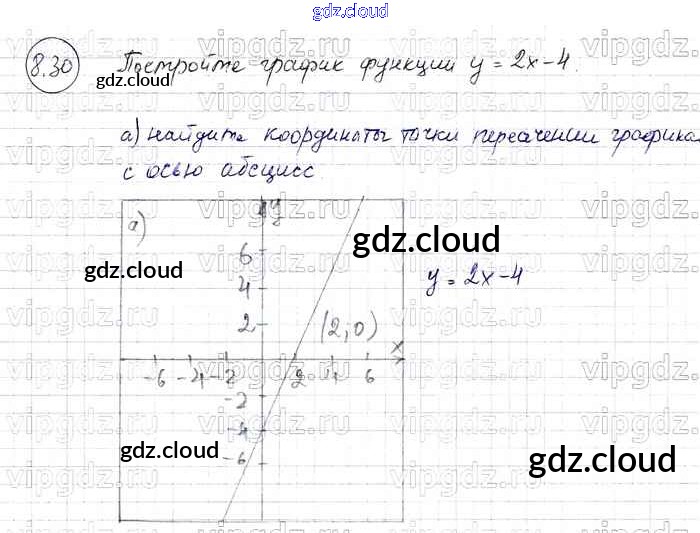 gdz.cloud
8.30 Постройте график функции y = 2x-4.
gdz.cloud
а) найдите координаты точки пересечении графика
с осью абсцисс.
а)
y
gdz.cloud
6
gdz.cloud
4
y = 2x-4
2
(2,0)
x
-6 -4 -2 2 4 6
-2
-4
gdz.cloud
-6
gdz.cloud
vipgdz.ru